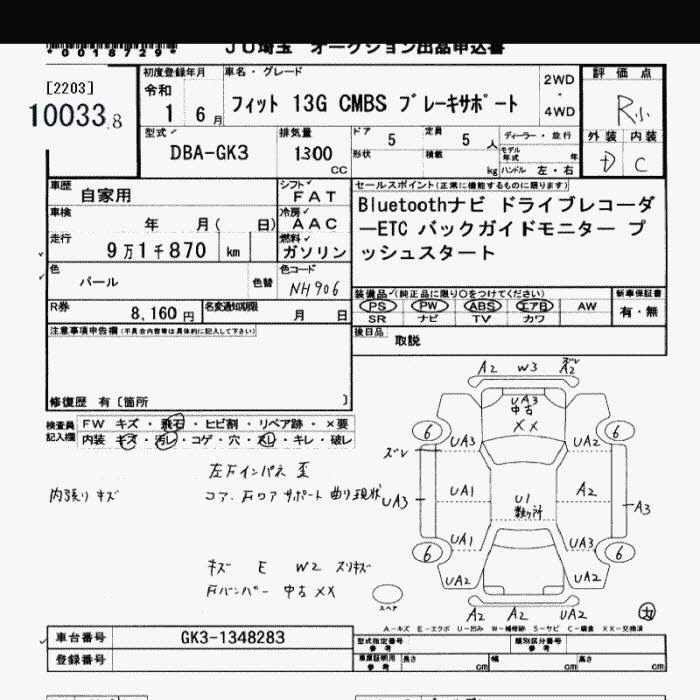 *0018729*
JU埼玉 オークション出品申込書
[2203]
10033.8
初度登録年月
令和
1 6月
車名・グレード
フィット 13G CMBS ブレーキサポート
2WD
・
4WD
評価点
R
外装 内装
C
型式
DBA-GK3
排気量
1300
CC
ドア 5
定員 5 人
形状
積載 kg
ディーラー・並行
モデル年式 年
ハンドル 左・右
車歴
自家用
シフト
FAT
車検
年 月( 日)
冷房
AAC
走行
9万1千870 km
燃料
ガソリン
色
パール
色替
色コード
NH906
R券
8,160円
名変通知期限
月 日
セールスポイント(正常に機能するものに限ります)
Bluetoothナビ ドライブレコーダ
ーETC バックガイドモニター プ
ッシュスタート
装備品(純正品に限り○をつけてください)
PS PW ABS エアB AW
SR ナビ TV カワ
新車保証書
有・無
後日品
取説
注意事項申告欄(不具合内容等は具体的に記入して下さい)
修復歴 有〔箇所 〕
検査員記入欄
FW キズ・飛石・ヒビ割・リペア跡・×要
内装 キズ・汚レ・コゲ・穴・スレ・キレ・破レ
左Fインパネ 歪
内張り キズ
コア.
サポート 曲り現状
キズ E W2 スリキズ
Fバンパー 中古 XX
A2 W3 ズレ
A2
UA3
中古
XX
6 6
ズレ
UA3 UA2
UA3 UA1 U1 A2 A3
数ヶ所
UA1 UA3
6 6
UA2 UA2
A2 A2 UA2
スペア
A-キズ E-エクボ U-凹み W-補修跡 S-サビ C-腐食 XX-交換済
車台番号
GK3-1348283
登録番号
型式指定番号
参考
類別区分番号
参考
車庫証明用
参考
長さ cm 幅 cm 高さ cm